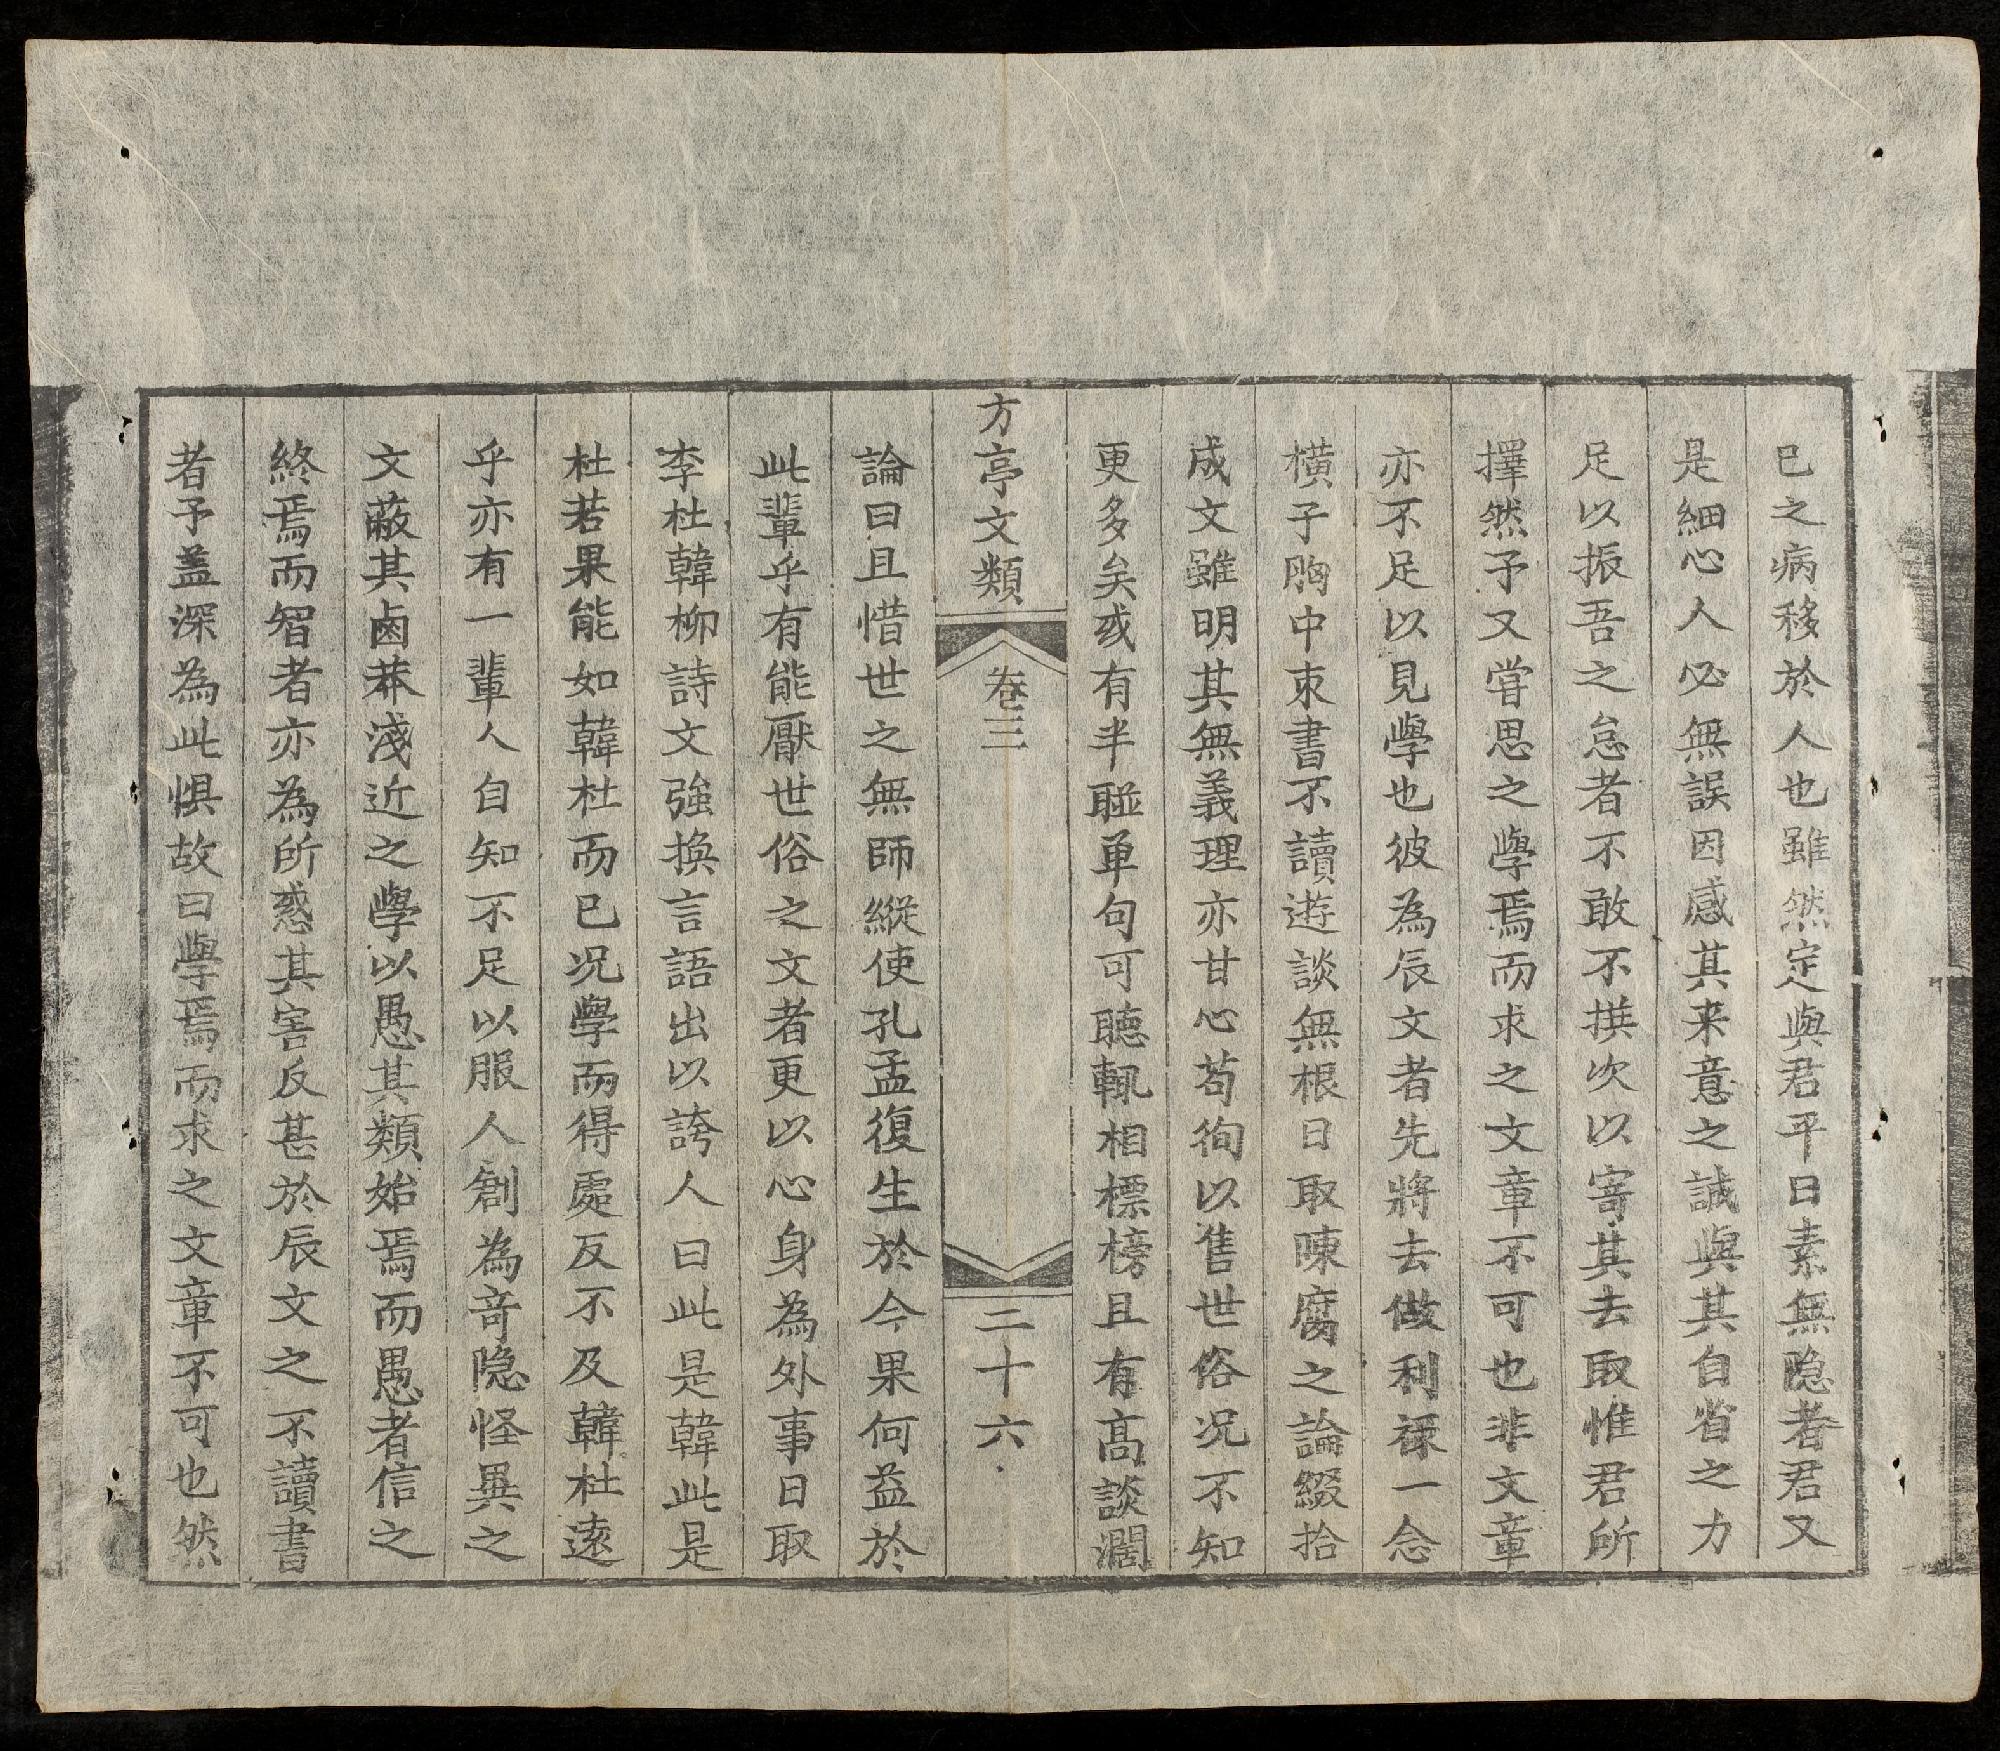 已之病移於人也雖然定與君平日素無隐者君又
是細心人必無誤因感其来意之誠與其自省之力
足以振吾之怠者不敢不撰次以寄其去取惟君所
擇然予又嘗思之學焉而求之文章不可也非文章
亦不足以見學也彼為辰文者先將去做利祿一念
横子胸中束書不讀遊談無根日取陳腐之論綴拾
成文雖明其無義理亦甘心苟徇以售世俗况不知
更多矣或有半聯单句可聽輒相標榜且有高談濶
方亭文類 卷三 二十六
論曰且惜世之無師縱使孔孟復生於今果何益於
此輩乎有能厭世俗之文者更以心身為外事日取
李杜韓柳詩文強換言語出以誇人曰此是韓此是
杜若果能如韓杜而已况學而得處反不及韓杜遠
乎亦有一輩人自知不足以服人創為竒隐怪異之
文蔽其鹵莽淺近之學以愚其類始焉而愚者信之
終焉而智者亦為所惑其害反甚於辰文之不讀書
者予盖深為此惧故曰學焉而求之文章不可也然